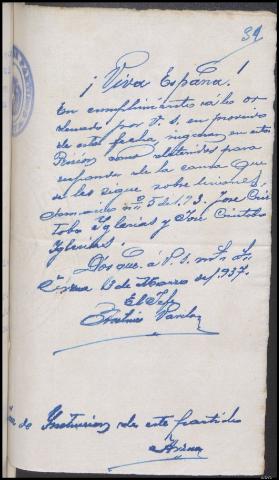 39
¡Viva España!
En cumplimiento a lo or
denado por V. S. en provisio
de esta fecha, ingresan en esta
Prision como detenidos para
responder de la causa que
se les sigue sobre lesiones,
Sumario nº 5 de 193 . José Cris
tobo Iglesias y José Cristobo
Iglesias.
Dios gue. a V. S. m. a.
13 de Marzo de 1937.
El Jefe
de Instruccion de este partido